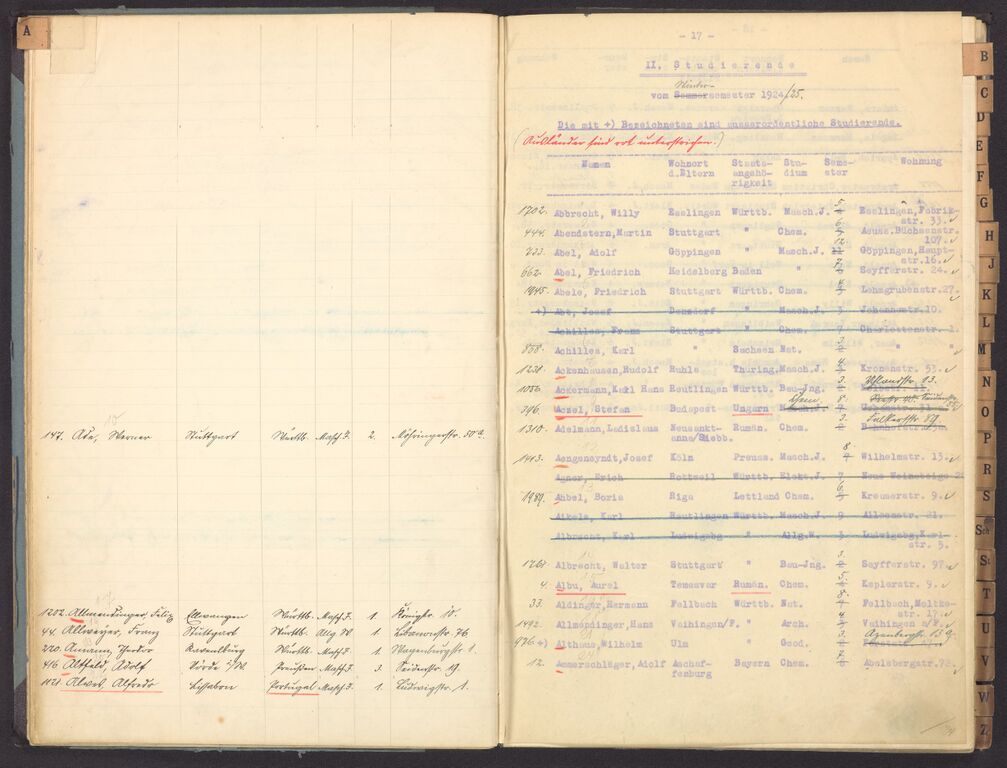 A
147. Abe, Werner Stuttgart Württb. Masch.I. 2. Möhringerstr. 50a
1252. Allmendinger, Felix Ellwangen Württb. Masch.I. 1. Königstr. 10.
44. Allweyer, Franz Stuttgart Württb. Allg.W. 1. Libanonstr. 76
220. Amann, Theodor Ravensburg Württb. Masch.I. 1. Wagenburgstr. 1.
416 Altfeld, Adolf Preußen Masch.I. 3. Seidenstr. 19.
1121. Alves, Alfredo Lissabon Portugal Masch.I. 1. Ludwigstr. 1.
- 17 -
II. Studierende
Winter-
vom Sommersemester 1924/25.
Die mit +) Bezeichneten sind ausserordentliche Studierende.
(Ausländer sind rot unterstrichen.)
Namen Wohnort Staats- Stu- Seme- Wohnung
d.Eltern angehö- dium ster
rigkeit
1702. Abbrecht, Willy Esslingen Württb. Masch.J. 5 Esslingen, Fabrik-
str. 33.
444. Abendstern, Martin Stuttgart " Chem. 6 Äuss.Büchsenstr.
107.
233. Abel, Adolf Göppingen " Masch.J. 12 Göppingen, Haupt-
str.16.
662. Abel, Friedrich Heidelberg Baden " 7 Seyfferstr. 24.
1945. Abele, Friedrich Stuttgart Württb. Chem. 4 Lehmgrubenstr.27.
+) Abt, Josef Denzdorf " Masch.J. Johannesstr.10.
Achilles, Franz Stuttgart " Chem. Charlottenstr. 1.
858. Achilles, Karl " Sachsen Nat. 3. " "
1231. Ackenhausen, Rudolf Ruhla Thüring. Masch.J. 4 Kronenstr. 53.
1056. Ackermann, Karl Hans Reutlingen Württb. Bau-Jng. 3. Uhlandstr. 13.
396. Aczel, Stefan Budapest Ungarn Chem. 8.
1310. Adelmann, Ladislaus Neusankt- Rumän. Chem. 3 Falkertstr. 89
anna/Siebb.
1413. Aengeneyndt, Josef Köln Preuss. Masch.J. 8. Wilhelmstr. 13.
Agner, Erich Rottweil Württb. Elekt.J. Neue Weinsteige
1989. Ahbel, Boris Riga Lettland Chem. 6. Kreuserstr. 9.
Aikele, Karl Reutlingen Württb. Masch.J. 9 Alleenstr. 21.
Albrecht, Karl Ludwigsbg " Allg.W. Ludwigsbg, Karl-
str. 5.
1261. Albrecht, Walter Stuttgart " Bau-Jng. 3. Seyfferstr. 97.
4. Albu, Aurel Temesvar Rumän. Chem. 5. Keplerstr. 9.
33. Aldinger, Hermann Fellbach Württb. Nat. 8 Fellbach, Moltke-
str. 17.
1492. Allmendinger, Hans Vaihingen/F. " Arch. 4 Vaihingen a/F.
976. +) Althaus, Wilhelm Ulm " Geod. 3 Azenbergstr. 13
12. Ammerschläger, Adolf Aschaf- Bayern Chem. Abelsbergstr.72.
fenburg
B
C
D
E
F
G
H
J
K
L
M
N
O
P
R
S
Sch
St
T
U
V
W
Z